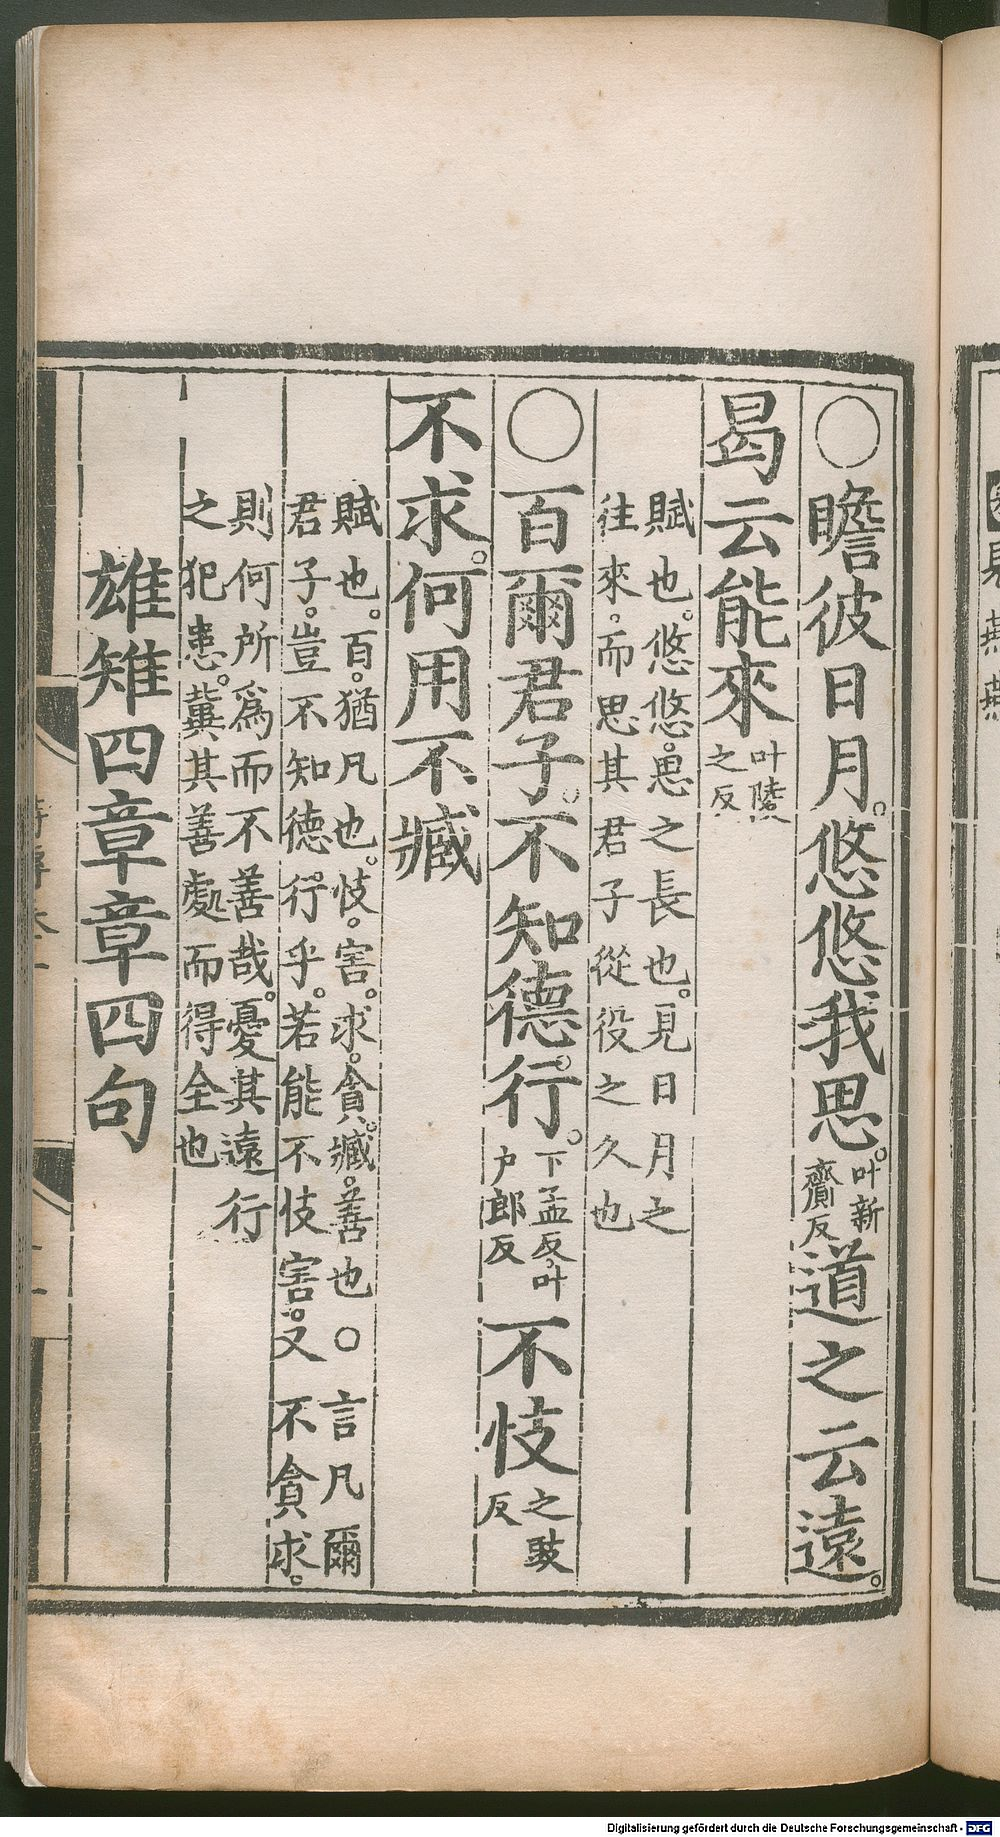 ○瞻彼日月。悠悠我思。叶新齎反道之云遠。
曷云能來叶陵之反
賦也。悠悠。思之長也。見日月之
往來。而思其君子從役之久也
○百爾君子。不知德行。下孟反。叶戶郎反不忮之豉反
不求。何用不臧
賦也。百。猶凡也。忮。害。求。貪。臧。善也○言凡爾
君子。豈不知德行乎。若能不忮害。又不貪求。
則何所爲而不善哉。憂其遠行
之犯患。冀其善處而得全也
雄雉四章章四句
Digitalisierung gefördert durch die Deutsche Forschungsgemeinschaft - DFG